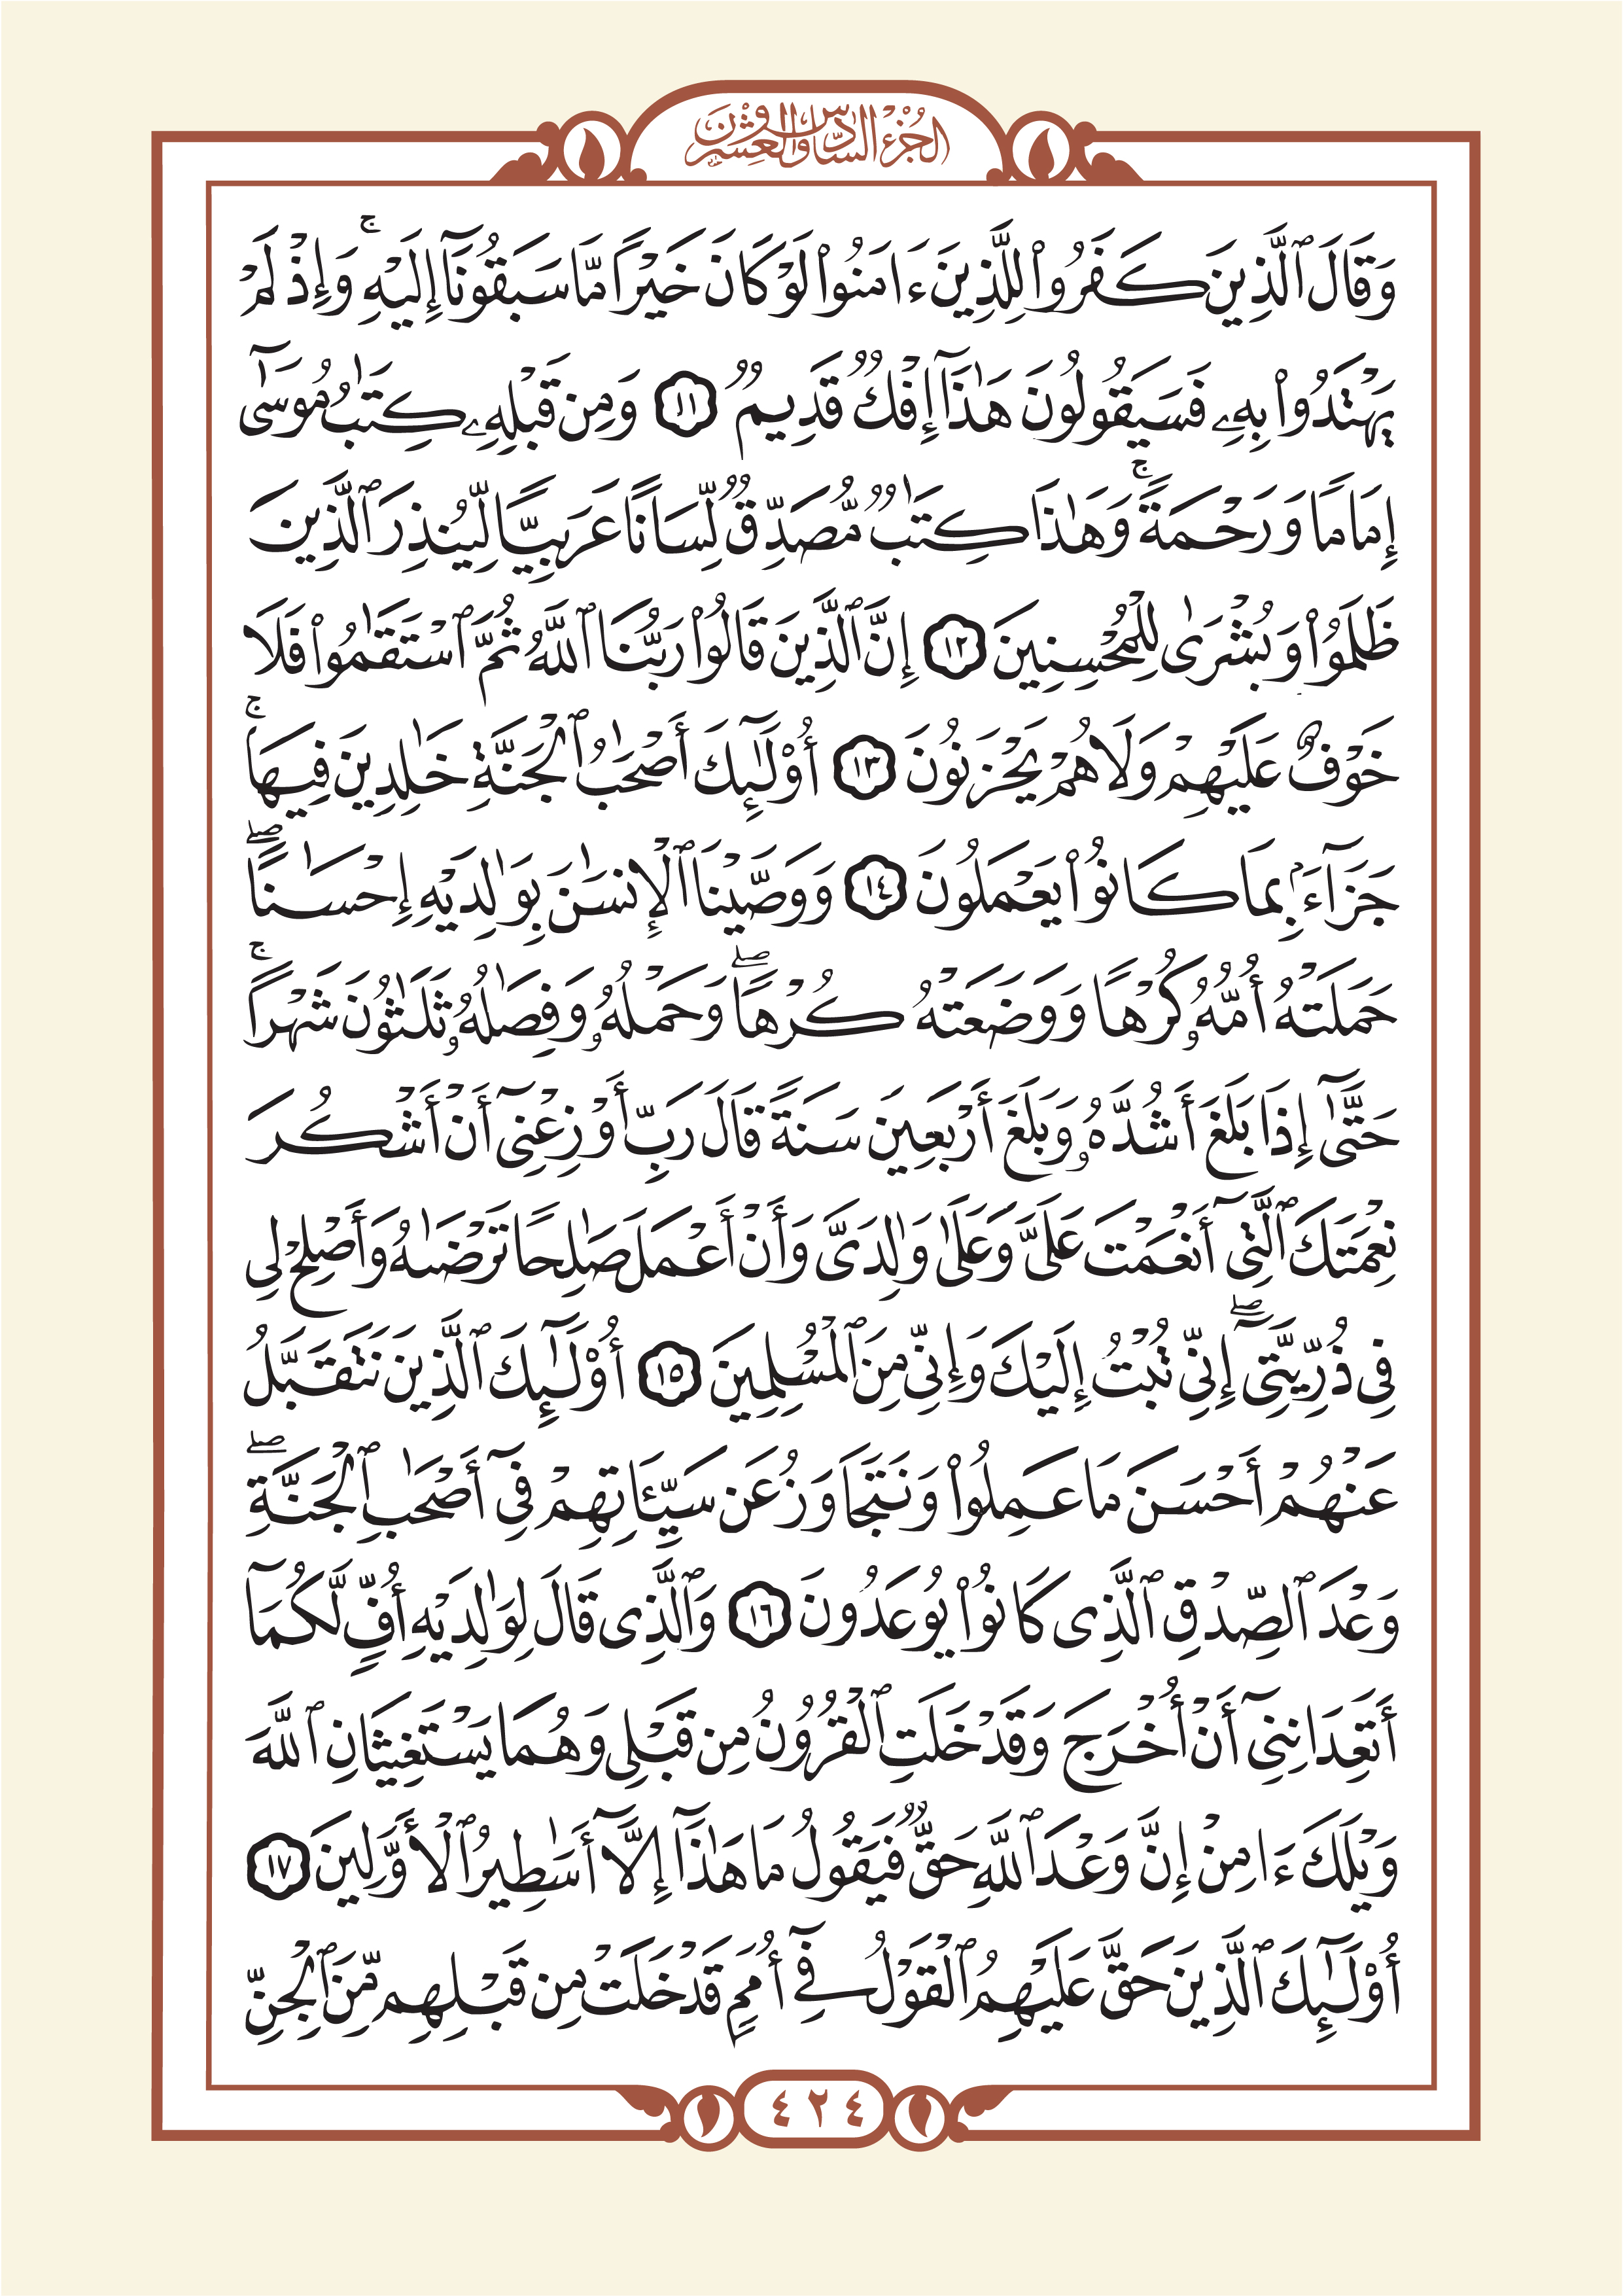 الجزء السادس والعشرون
وَقَالَ ٱلَّذِينَ كَفَرُوا۟ لِلَّذِينَ ءَامَنُوا۟ لَوْ كَانَ خَيْرًا مَّا سَبَقُونَآ إِلَيْهِ ۚ وَإِذْ لَمْ
يَهْتَدُوا۟ بِهِۦ فَسَيَقُولُونَ هَـٰذَآ إِفْكٌ قَدِيمٌ ١١ وَمِن قَبْلِهِۦ كِتَـٰبُ مُوسَىٰٓ
إِمَامًا وَرَحْمَةً ۚ وَهَـٰذَا كِتَـٰبٌ مُّصَدِّقٌ لِّسَانًا عَرَبِيًّا لِّيُنذِرَ ٱلَّذِينَ
ظَلَمُوا۟ وَبُشْرَىٰ لِلْمُحْسِنِينَ ١٢ إِنَّ ٱلَّذِينَ قَالُوا۟ رَبُّنَا ٱللَّهُ ثُمَّ ٱسْتَقَـٰمُوا۟ فَلَا
خَوْفٌ عَلَيْهِمْ وَلَا هُمْ يَحْزَنُونَ ١٣ أُو۟لَـٰٓئِكَ أَصْحَـٰبُ ٱلْجَنَّةِ خَـٰلِدِينَ فِيهَا ۚ
جَزَآءَۢ بِمَا كَانُوا۟ يَعْمَلُونَ ١٤ وَوَصَّيْنَا ٱلْإِنسَـٰنَ بِوَٰلِدَيْهِ إِحْسَـٰنًا ۖ
حَمَلَتْهُ أُمُّهُۥ كُرْهًا وَوَضَعَتْهُ كُرْهًا ۖ وَحَمْلُهُۥ وَفِصَـٰلُهُۥ ثَلَـٰثُونَ شَهْرًا ۚ
حَتَّىٰٓ إِذَا بَلَغَ أَشُدَّهُۥ وَبَلَغَ أَرْبَعِينَ سَنَةً قَالَ رَبِّ أَوْزِعْنِىٓ أَنْ أَشْكُرَ
نِعْمَتَكَ ٱلَّتِىٓ أَنْعَمْتَ عَلَىَّ وَعَلَىٰ وَٰلِدَىَّ وَأَنْ أَعْمَلَ صَـٰلِحًا تَرْضَىٰهُ وَأَصْلِحْ لِى
فِى ذُرِّيَّتِىٓ ۖ إِنِّى تُبْتُ إِلَيْكَ وَإِنِّى مِنَ ٱلْمُسْلِمِينَ ١٥ أُو۟لَـٰٓئِكَ ٱلَّذِينَ نَتَقَبَّلُ
عَنْهُمْ أَحْسَنَ مَا عَمِلُوا۟ وَنَتَجَاوَزُ عَن سَيِّـَٔاتِهِمْ فِىٓ أَصْحَـٰبِ ٱلْجَنَّةِ ۖ
وَعْدَ ٱلصِّدْقِ ٱلَّذِى كَانُوا۟ يُوعَدُونَ ١٦ وَٱلَّذِى قَالَ لِوَٰلِدَيْهِ أُفٍّ لَّكُمَآ
أَتَعِدَانِنِىٓ أَنْ أُخْرَجَ وَقَدْ خَلَتِ ٱلْقُرُونُ مِن قَبْلِى وَهُمَا يَسْتَغِيثَانِ ٱللَّهَ
وَيْلَكَ ءَامِنْ إِنَّ وَعْدَ ٱللَّهِ حَقٌّ فَيَقُولُ مَا هَـٰذَآ إِلَّآ أَسَـٰطِيرُ ٱلْأَوَّلِينَ ١٧
أُو۟لَـٰٓئِكَ ٱلَّذِينَ حَقَّ عَلَيْهِمُ ٱلْقَوْلُ فِىٓ أُمَمٍ قَدْ خَلَتْ مِن قَبْلِهِم مِّنَ ٱلْجِنِّ
٤٢٤